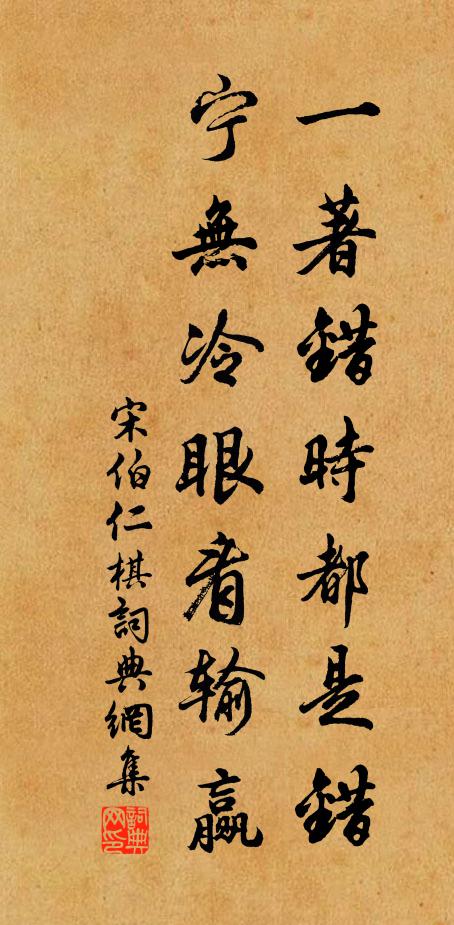 一著錯時都是錯
宁無冷眼看输贏
宋伯仁棋詞典網集
詞典网印